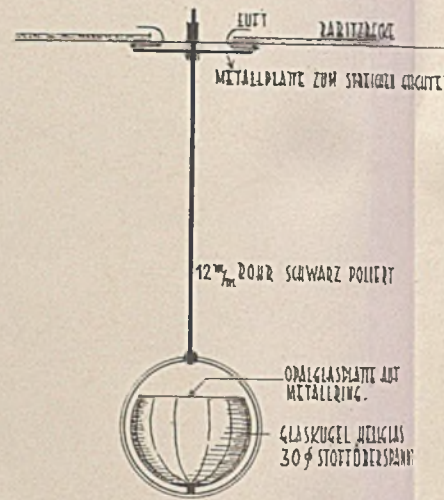 LUFT
RABITZDECKE
METALLPLATTE ZUM
12 m/m ROHR SCHWARZ POLIERT
OPALGLASPLATTE AUF
METALLRING.
GLASKUGEL HELLGLAS
30 ϕ STOFFÜBERSPANNT